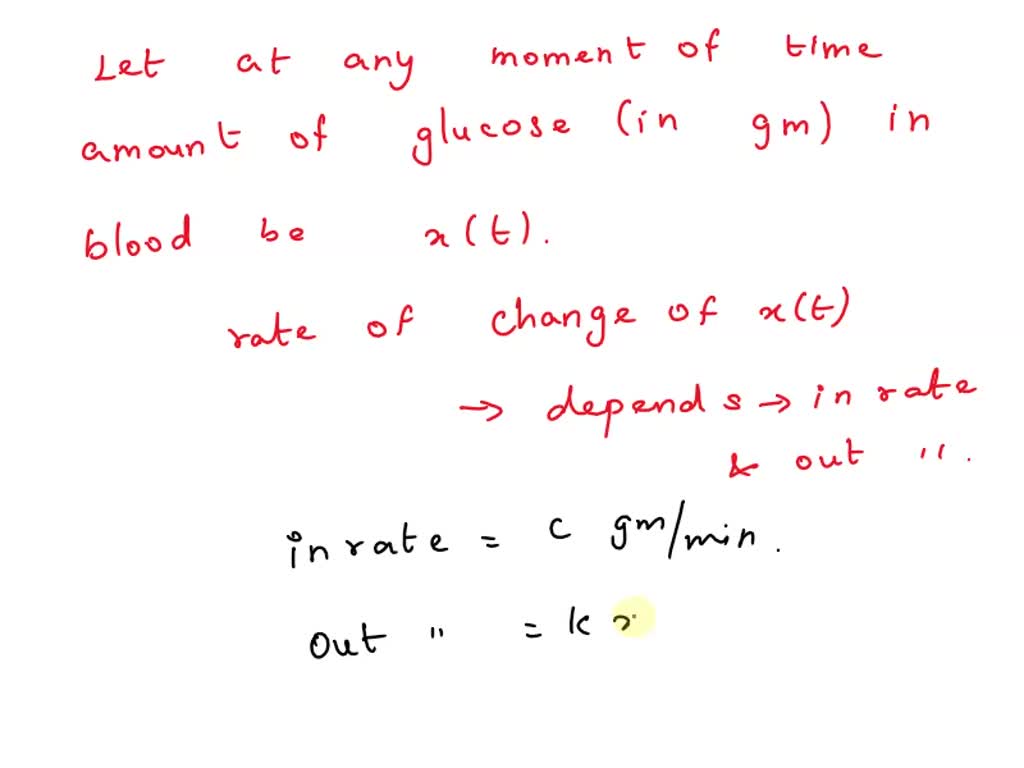 Let at any moment of time
amount of glucose (in gm) in
blood be x(t).
rate of change of x(t)
→ depends → in rate
& out " .
in rate = c gm/min.
out " = k